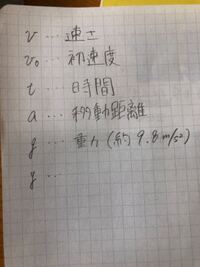 v … 速さ
v₀ … 初速度
t … 時間
a … 移動距離
g … 重力 (約 9.8 m/s²)
y …